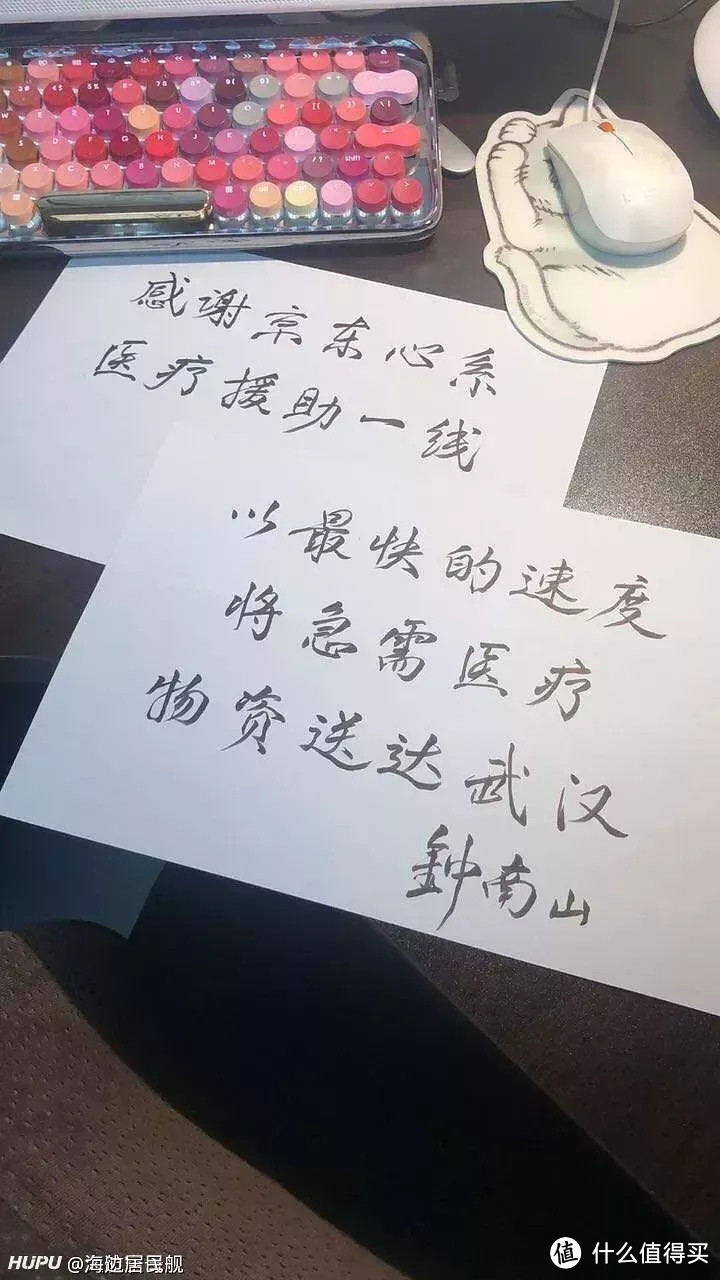 感谢京东心系
医疗援助一线
以最快的速度
将急需医疗
物资送达武汉
鍾南山
HUPU @海边居民
值 什么值得买